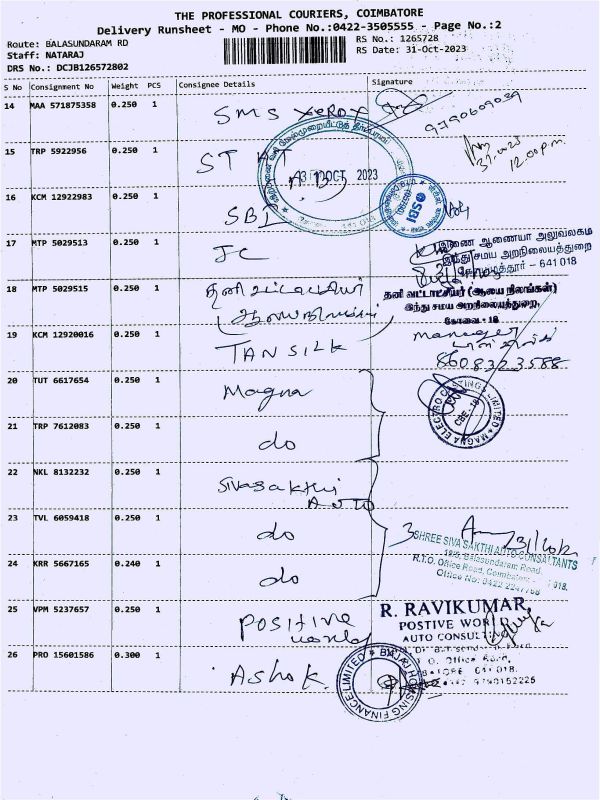 THE PROFESSIONAL COURIERS, COIMBATORE
Delivery Runsheet - MO - Phone No.:0422-3505555 - Page No.:2
Route: BALASUNDARAM RD
RS No.: 1265728
Staff: NATARAJ
RS Date: 31-Oct-2023
DRS No.: DCJB126572802
S No Consignment No Weight PCS Consignee Details Signature
14 MAA 571875358 0.250 1 SMS XEROX
15 TRP 5922956 0.250 1 ST
12.00 p.m.
31 OCT 2023
16 KCM 12922983 0.250 1 SBI
SBI
17 MTP 5029513 0.250 1 JC
இணை ஆணையர் அலுவலகம
இந்து சமய அறநிலையத்துறை
641 018
18 MTP 5029515 0.250 1 தனி வட்டாட்சியர்
தனி வட்டாட்சியர் (ஆலய நிலங்கள்)
இந்து சமய அறநிலையத்துறை,
கோவை - 18
19 KCM 12920016 0.250 1 TANSILK
Manager
8608323588
20 TUT 6617654 0.250 1 Magna
MAGNA ELECTRO CASTINGS LIMITED
CBE-18
21 TRP 7612083 0.250 1 do
22 NKL 8132232 0.250 1 Sivasakthi
AUTO
23 TVL 6059418 0.250 1 do
3
SHREE SIVA SAKTHI AUTO CONSULTANTS
18/5, Balasundaram Road,
R.T.O. Office Road, Coimbatore - 018.
Office No: 0422 2247768
24 KRR 5667165 0.240 1 do
25 VPM 5237657 0.250 1 Positive
world
R. RAVIKUMAR,
POSTIVE WOR
AUTO CONSULTIN
O. Office Road,
641 018.
26 PRO 15601586 0.300 1 Ashok
BAJAJ HOUSING FINANCE LIMITED